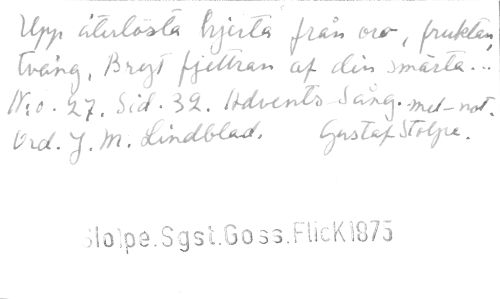 Upp återlösta hjerta från oro, fruktan,
tvång, Bryt fjettran af din smärta...
N:o. 27. Sid. 32. Advents-Sång. med-not.
Ord. J. M. Lindblad. Gustaf Stolpe.
Stolpe.Sgst.Goss.FlicK1875